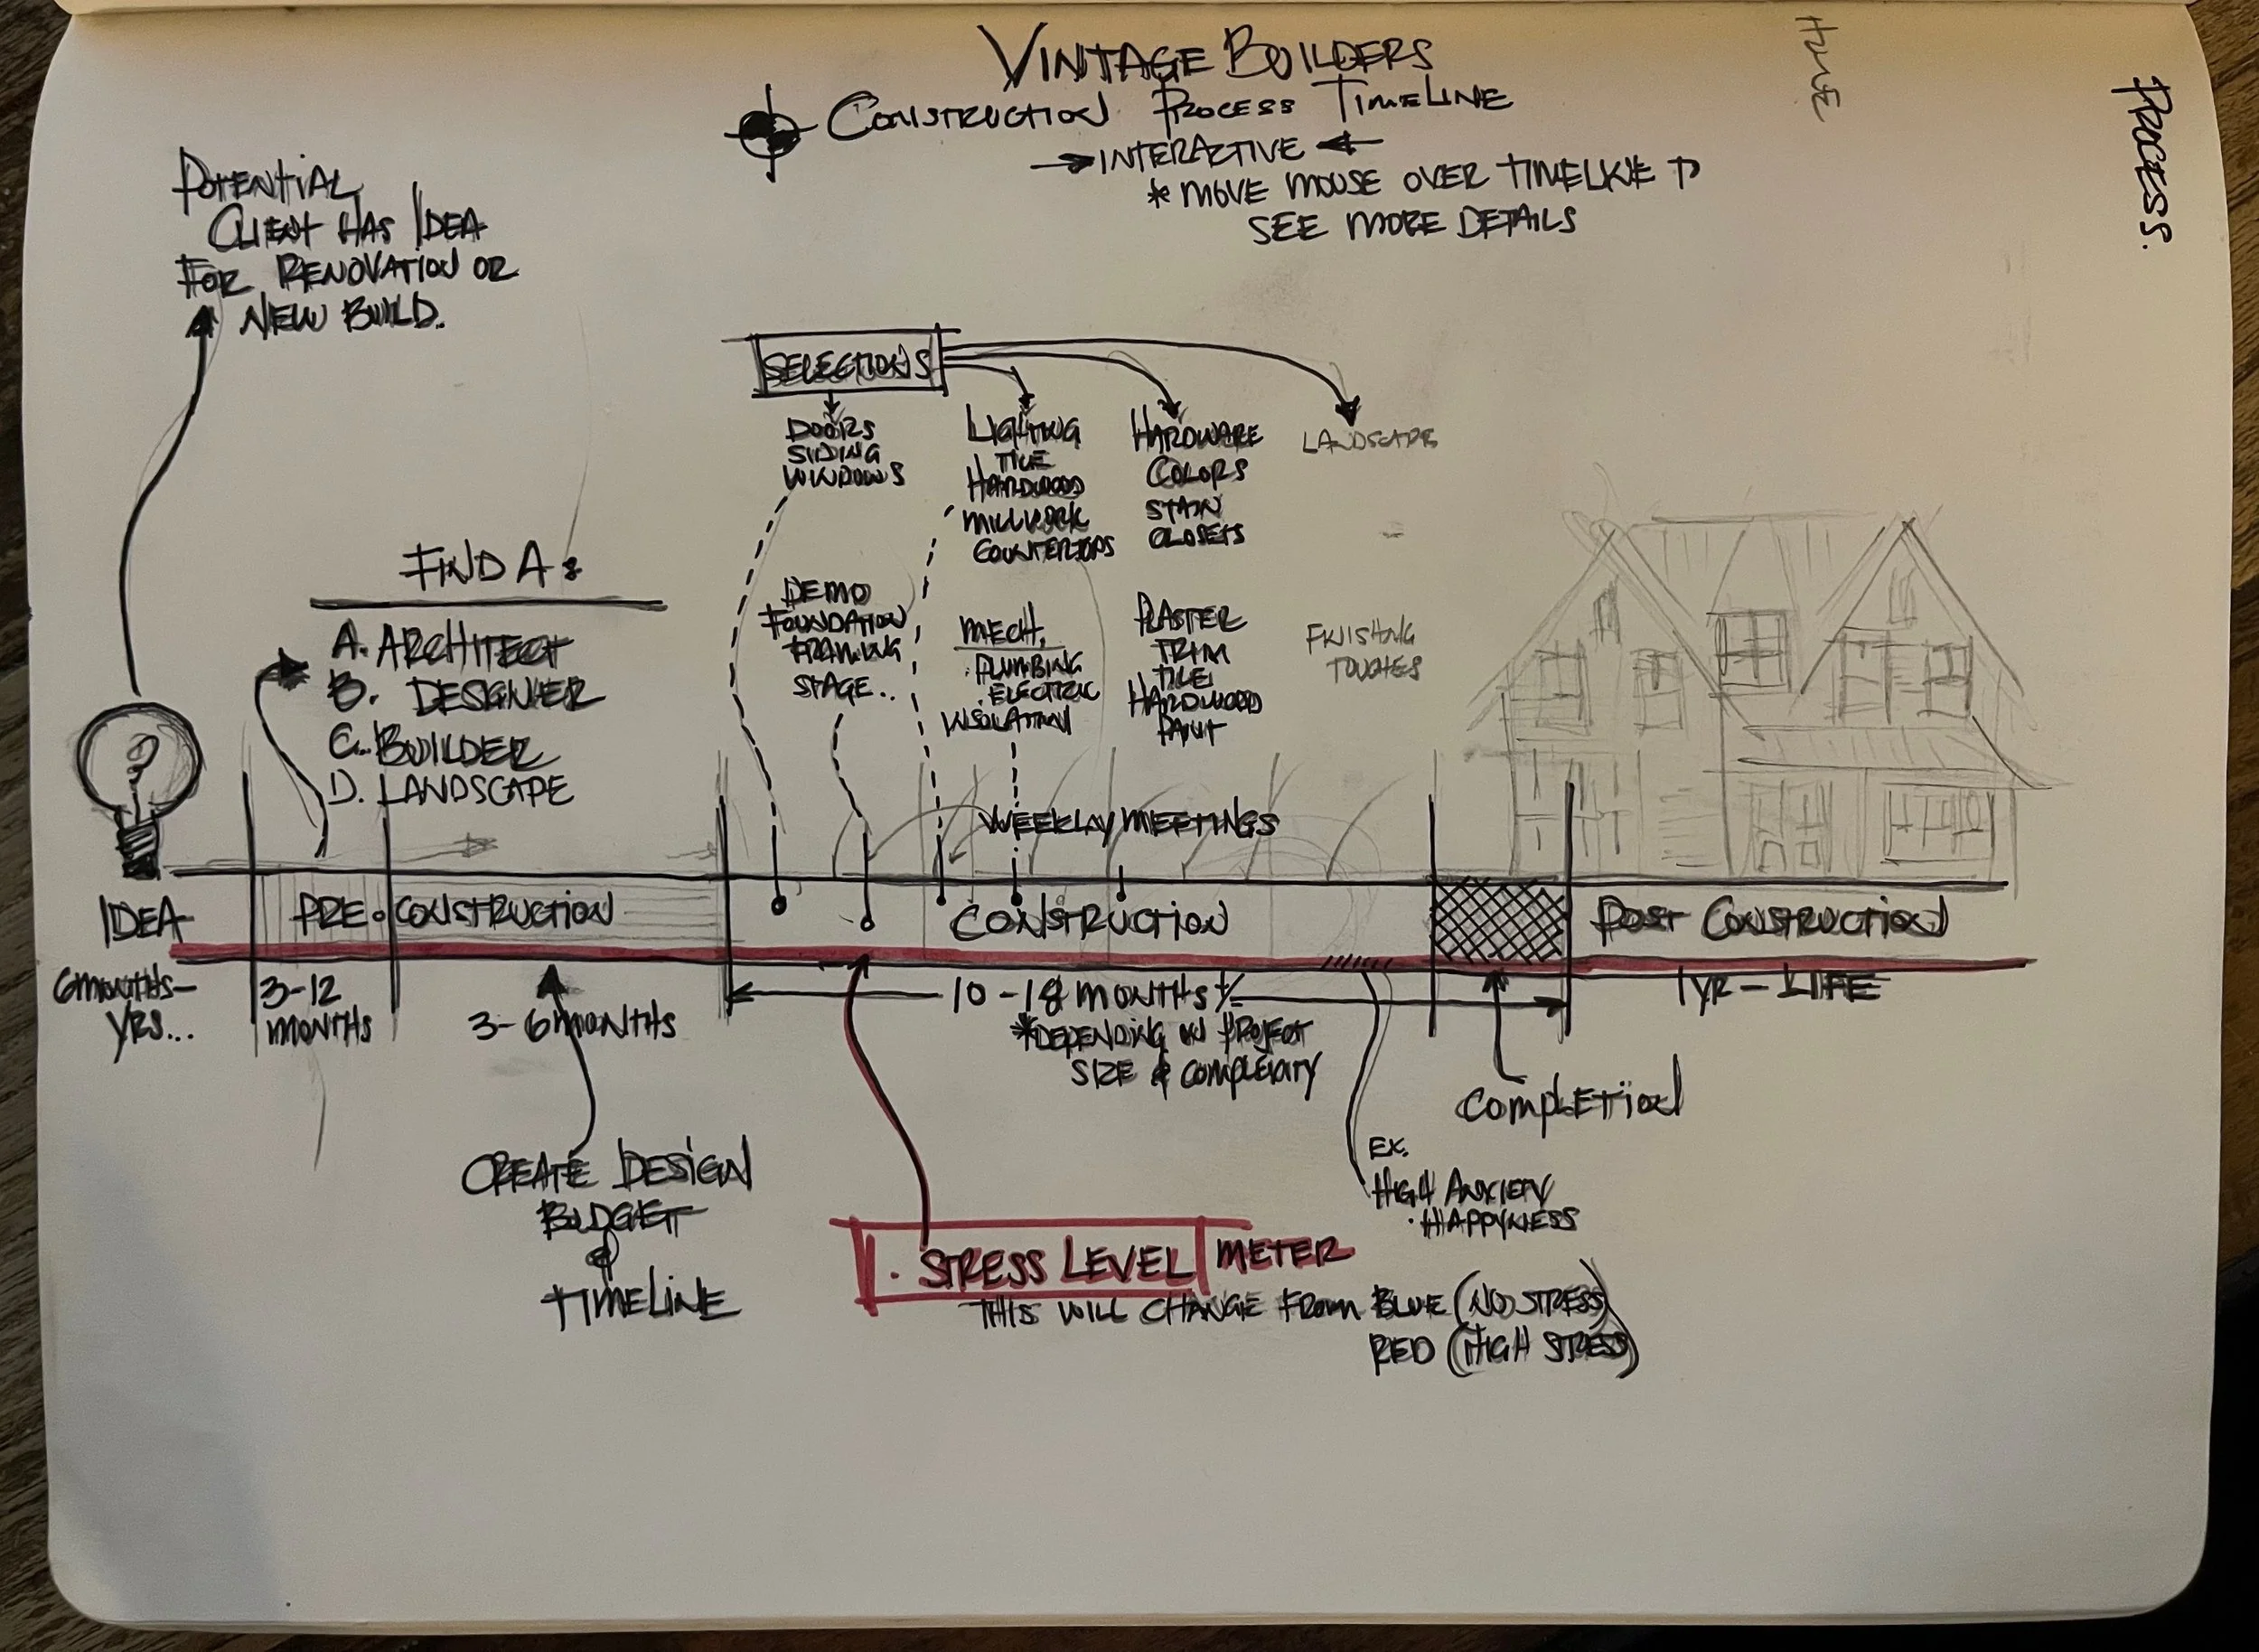 VINTAGE BUILDERS
CONSTRUCTION PROCESS TIMELINE
INTERACTIVE
* MOVE MOUSE OVER TIMELINE TO
SEE MORE DETAILS
PROCESS.
POTENTIAL
CLIENT HAS IDEA
FOR RENOVATION OR
NEW BUILD.
SELECTIONS
DOORS
SIDING
WINDOWS
LIGHTING
TILE
HARDWOOD
MILLWORK
COUNTERTOPS
HARDWARE
COLORS
STAIN
CLOSETS
LANDSCAPE
FIND A:
A. ARCHITECT
B. DESIGNER
C. BUILDER
D. LANDSCAPE
DEMO
FOUNDATION
FRAMING
STAGE..
MECH.
. PLUMBING
. ELECTRIC
INSOLATION
PLASTER
TRIM
TILE
HARDWOOD
PAINT
FINISHING
TOUCHES
WEEKLY MEETINGS
IDEA
PRE-CONSTRUCTION
CONSTRUCTION
POST CONSTRUCTION
6 MONTHS-
YRS...
3-12
MONTHS
3-6 MONTHS
10-18 MONTHS +/-
*DEPENDING ON PROJECT
SIZE & COMPLEXITY
1 YR - LIFE
COMPLETION
CREATE DESIGN
BUDGET
&
TIMELINE
EX.
HIGH ANXIETY
. HAPPYNESS
. STRESS LEVEL METER
THIS WILL CHANGE FROM BLUE (NO STRESS)
RED (HIGH STRESS)